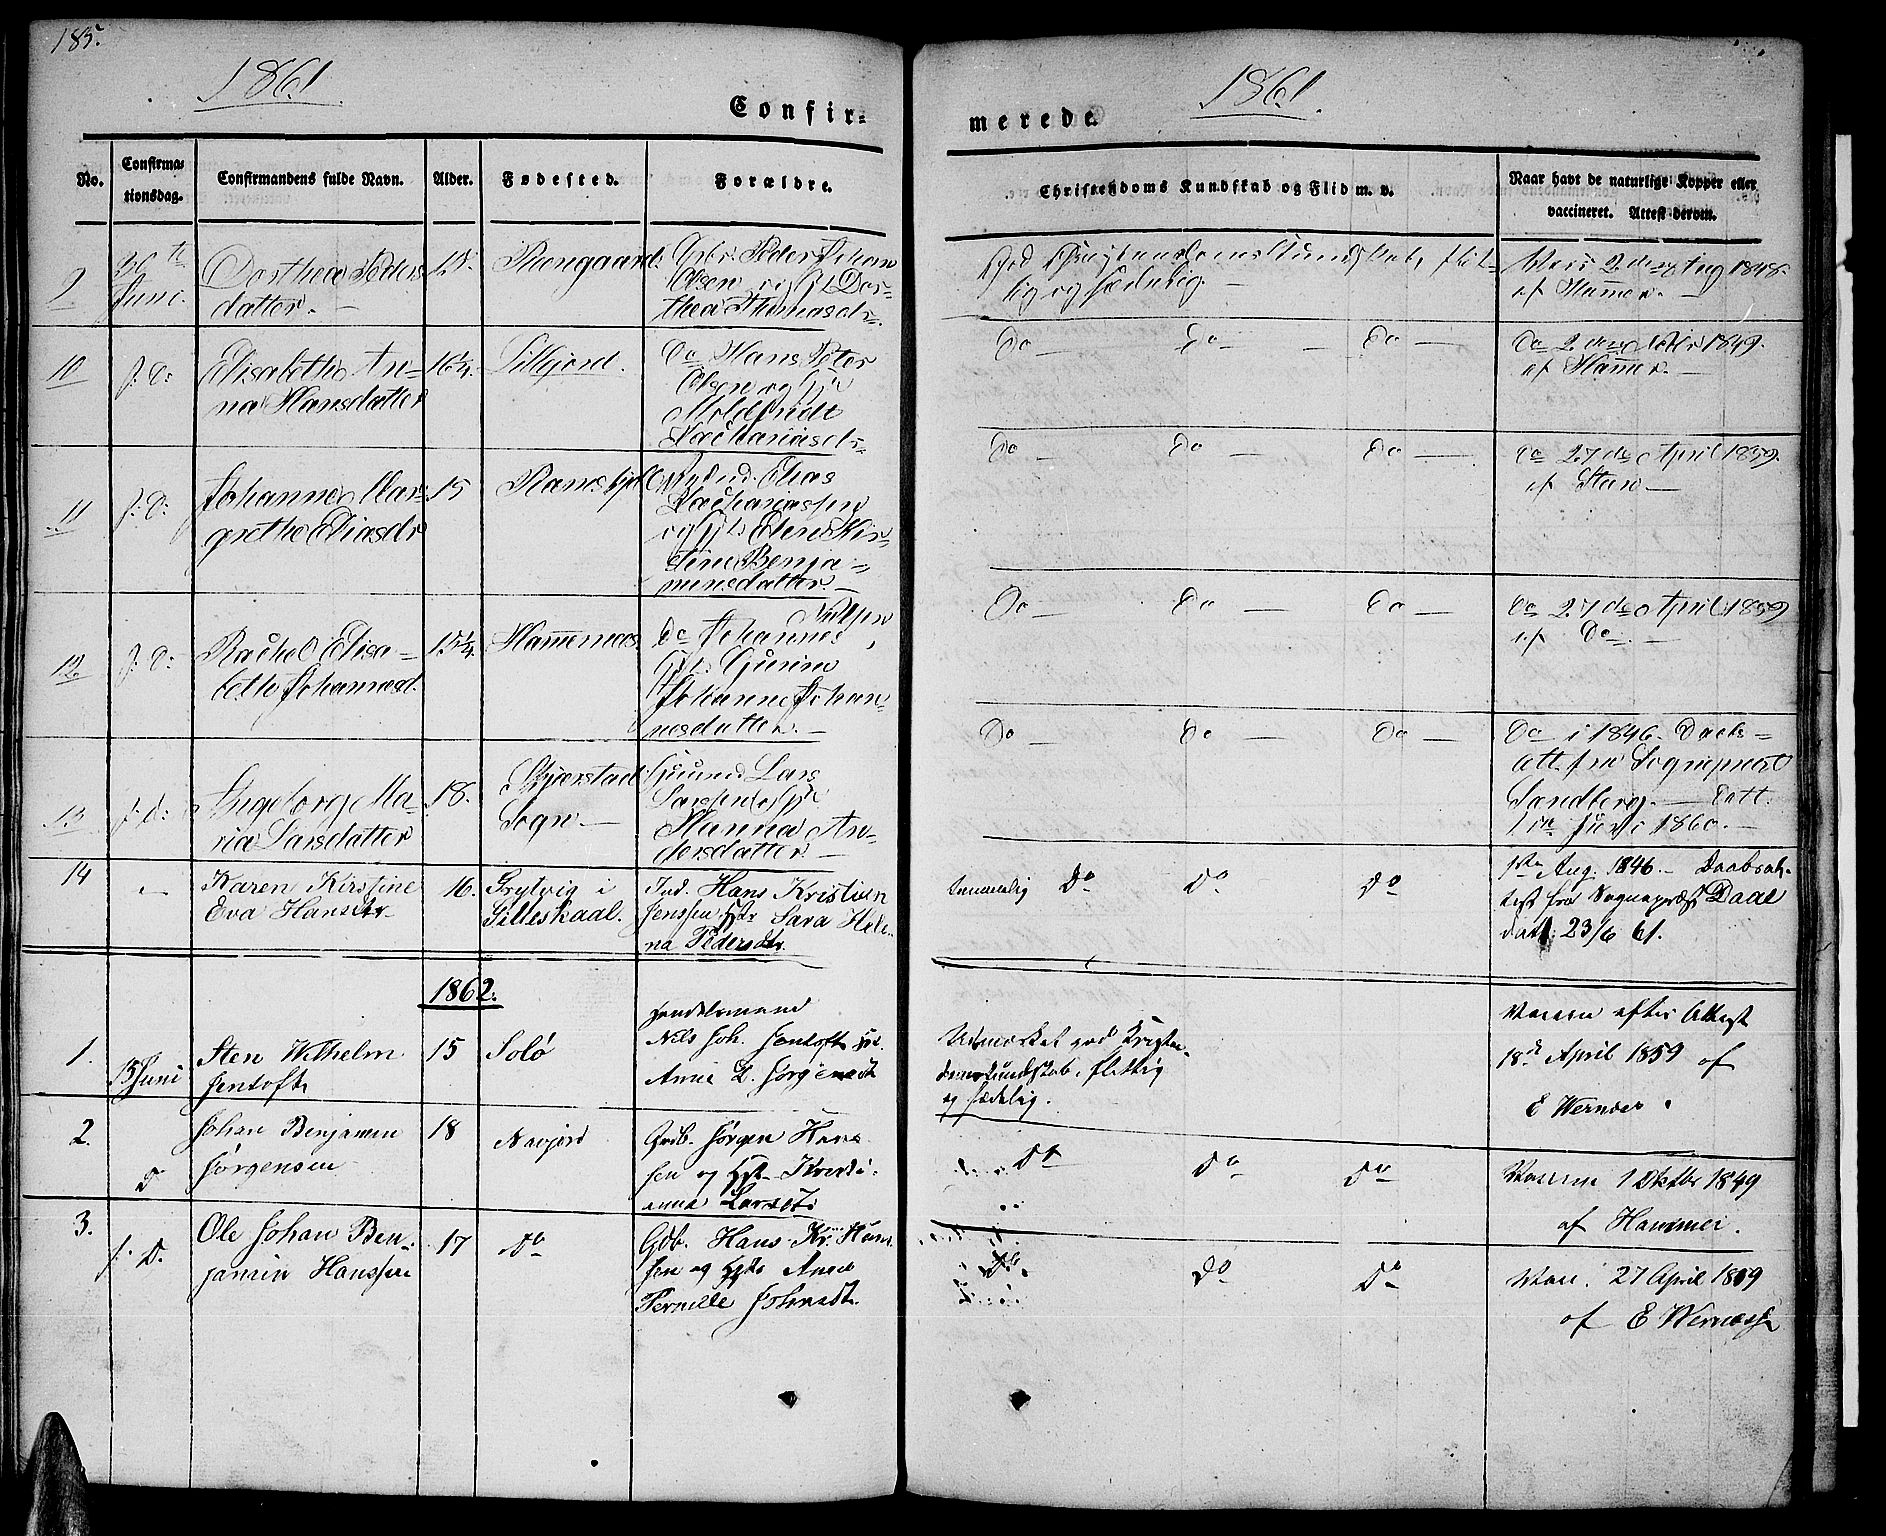 185.
1861
1861.
Confir-
merede.
No.
Confirma-
tionsdag.
Confirmandens fulde Navn.
Alder.
Fødested.
Forældre.
Christendoms Kundskab og Flid m. v.
Naar havt de naturlige Kopper eller
vaccineret. Attest derom.
9
30te
Juni.
Dorthea Peders
datter. —
Gbr. Peder Johan
Olsen og H. Dor-
thea Thomasdr.
God Christendomskundskab, flit-
tig og sædelig.
Vacc. 2den Aug 1848.
af Hammer. —
10
f. D:
Elisabeth An-
na Hansdatter
16¼.
Do Hans Peter
Olsen og
Zachariasdr.
Do — Do — Do —
Do 2den 1849.
af Hammer. —
11
f. D:
Johanne Mar-
grethe Eliasdr
15
Elias
Zachariassen
og Elen Kir-
stine Benja-
minsdatter. —
Do — Do — Do —
Do 27de April 1859.
af
12.
f. D:
Rachel Elisa-
beth Johannesd.
15¼.
Hammenæs
Nielsen
Do Johannes
Johanne Johan-
nesdatter. —
Do — Do — Do —
Do 27de April 1859
af Do. —
13
f. D:
Ingeborg Ma-
ria Larsdatter
18.
Skjerstad
Sogn. —
Lars
Larssen og
Hanna An-
dersdatter. —
Do — Do — Do —
Do i 1846. Daabs-
att. fra Sognepræst
Sandberg. — Datt.
Juni 1860. —
14
Karen Kirstine
Eva Hansdtr.
16.
Grytvig i
Gilleskaal.
Ind. Hans Kristian
Jenssen Hstr Sara Hele-
na Pedersdtr.
temmelig Do Do Do
1ste Aug. 1846 — Daabsat-
test fra Sognepræst Daae
dat. 23/6 61.
1862.
1.
15 Juni
Sten Wilhelm
Jentoft
15
Solö
Handelsmand
Nils Joh. Jentoft
Anne D.
Udmærket god Kristen-
domskundskab, flittig
og sædelig.
Vaccin efter Attest
18d April 1859 af
E Werner.
2.
D
Johan Benjamin
Jørgensen
18
Navjord
Gdb. Jørgen Hans
sen og Hst. Kristi-
anna Larsdt.
Do Do Do
Vaccin 1 Oktbr 1849
af Hammer.
3.
f. D.
Ole Johan Ben-
jamin Hanssen
17
Do
Gdb. Hans Kr. Han
sen og Hstr Anne
Pernille Johnsdt.
Do Do Do
Vacc. 27 April 1859
af E